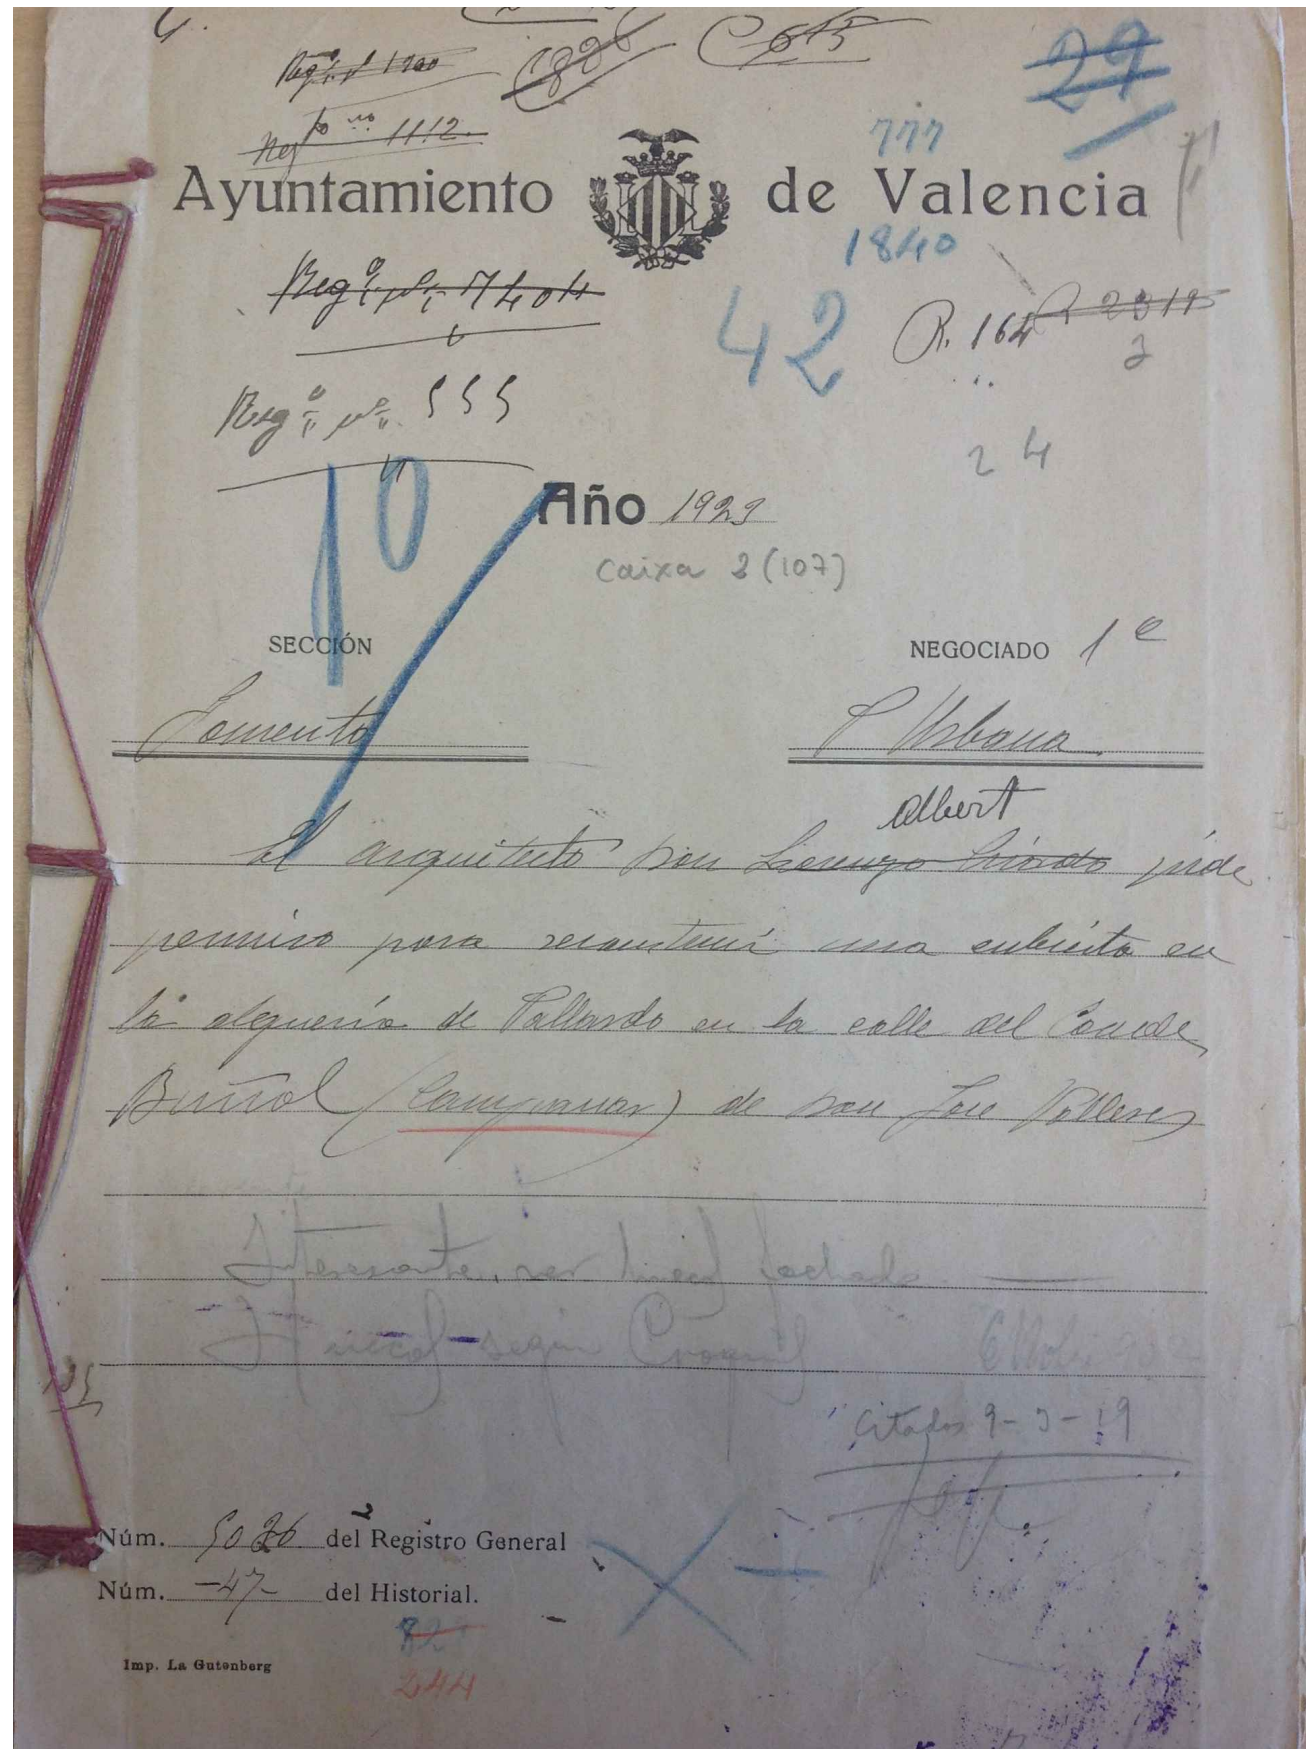 Reg.º nº 1200
1826
C 615
29
Neg.do nº 1112.
777
Ayuntamiento de Valencia
1840
Reg.º nº 7404
42
R. 164
R 2319
Reg.º nº 555
24
10
Año 1929
Caixa 3 (107)
SECCIÓN
NEGOCIADO 1º
Fomento
P Urbana
Albert
El arquitecto Don Lorenzo Criado pide
permiso para reconstruir una cubierta en
la alquería de Pallardo en la calle del Conde
Buñol (Campanar) de Don José Valleres
Interesante, ver fachada
según Croquis
Citados 9-3-29
Núm. 5026 del Registro General
Núm. -47- del Historial.
82
Imp. La Gutenberg
244